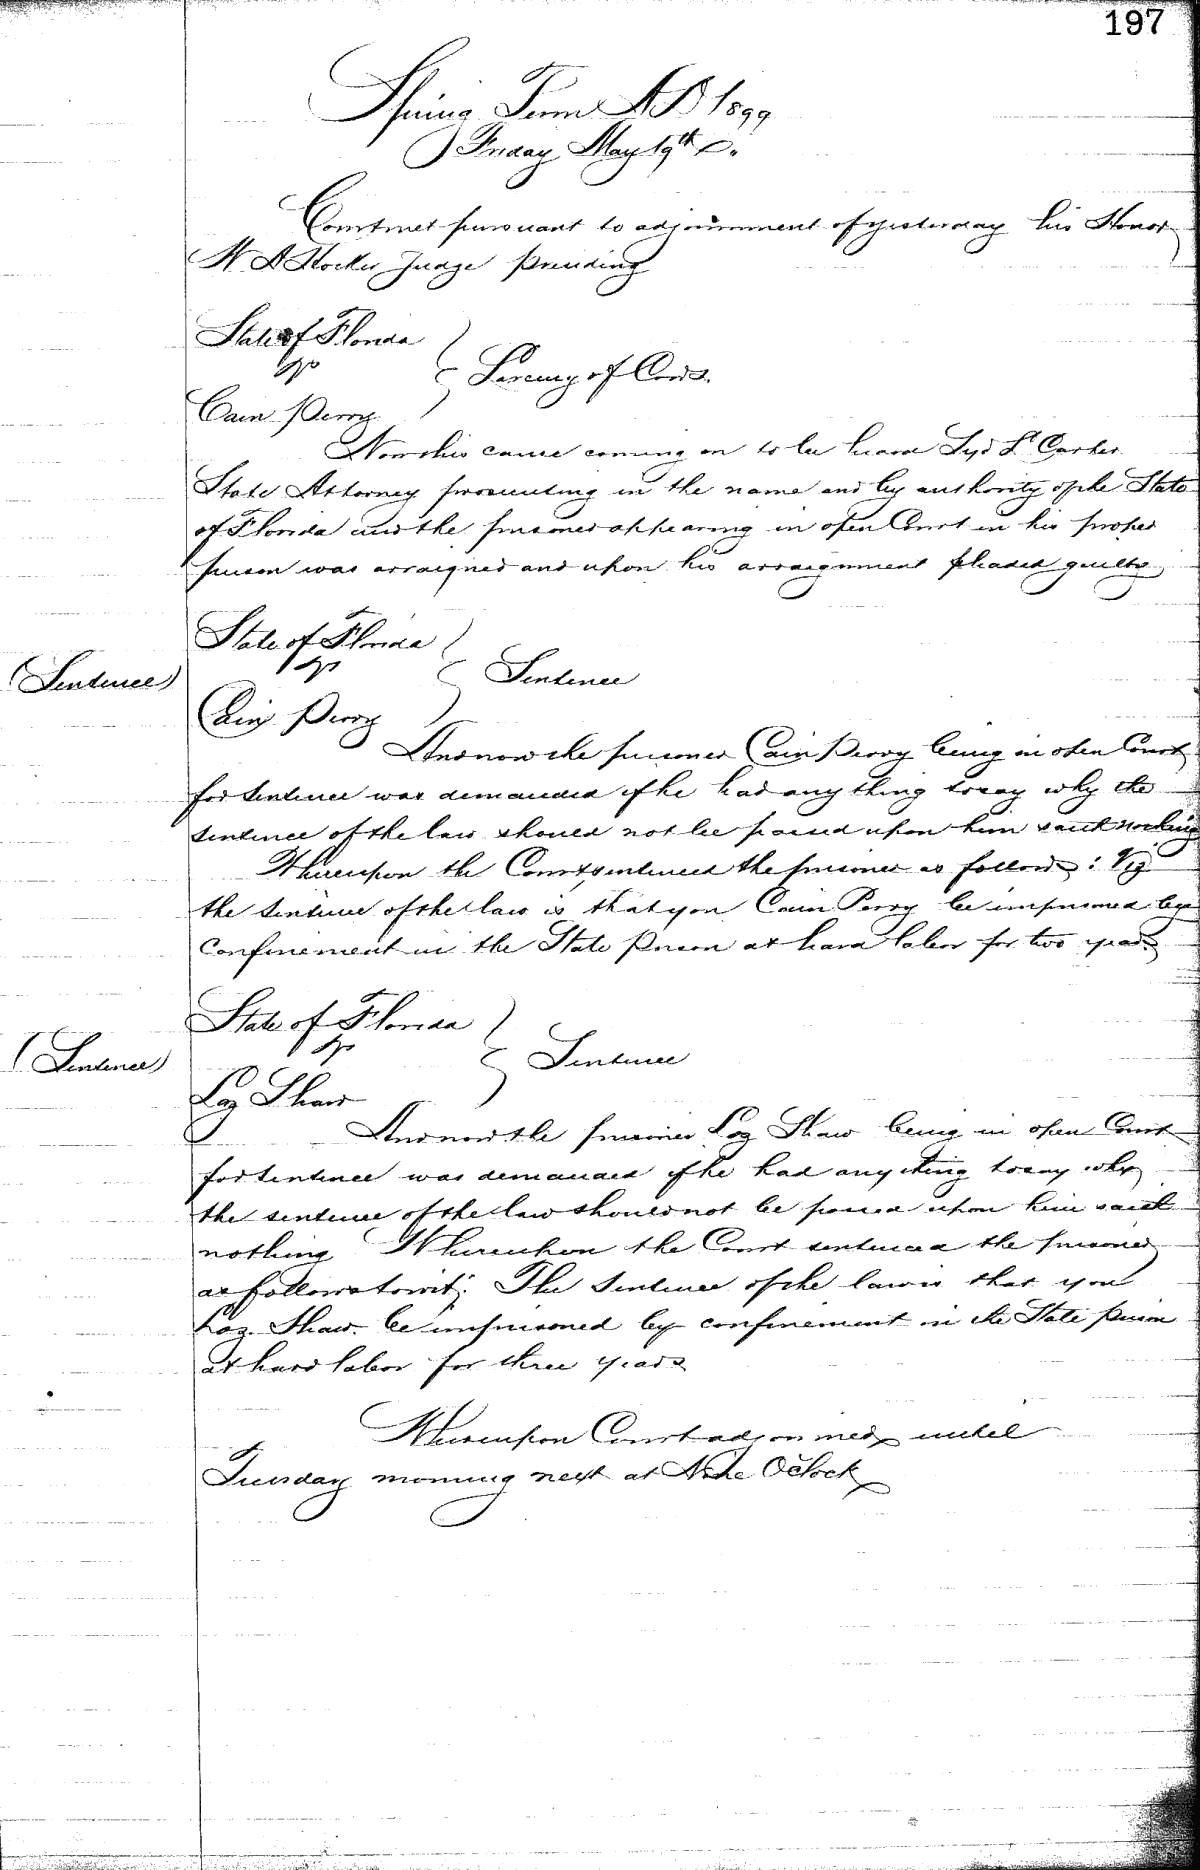 197
Spring Term AD 1899
Friday May 19th
Court met pursuant to adjournment of yesterday his Honor
W A Hocker Judge Presiding
State of Florida
vs
Larceny of Cows.
Cain Perry
Now this cause coming on to be heard Syd L Carter
State Attorney prosecuting in the name and by authority of the State
of Florida and the prisoner appearing in open Court in his proper
person was arraigned and upon his arraignment pleaded guilty
State of Florida
vs
(Sentence)
Sentence
Cain Perry
And now the prisoner Cain Perry being in open Court
for sentence was demanded if he had any thing to say why the
sentence of the law should not be passed upon him saith nothing
Whereupon the Court sentenced the prisoner as follows: Viz
the sentence of the law is that you Cain Perry be imprisoned by
confinement in the State Prison at hard labor for two years
State of Florida
vs
(Sentence)
Sentence
Loz Shaw
And now the prisoner Loz Shaw being in open Court
for sentence was demanded if he had any thing to say why
the sentence of the law should not be passed upon him saith
nothing Whereupon the Court sentenced the prisoner
as follows towit; The Sentence of the law is that you
Loz Shaw be imprisoned by confinement in the State prison
at hard labor for three years
Whereupon Court adjourned until
Tuesday morning next at Nine O'clock